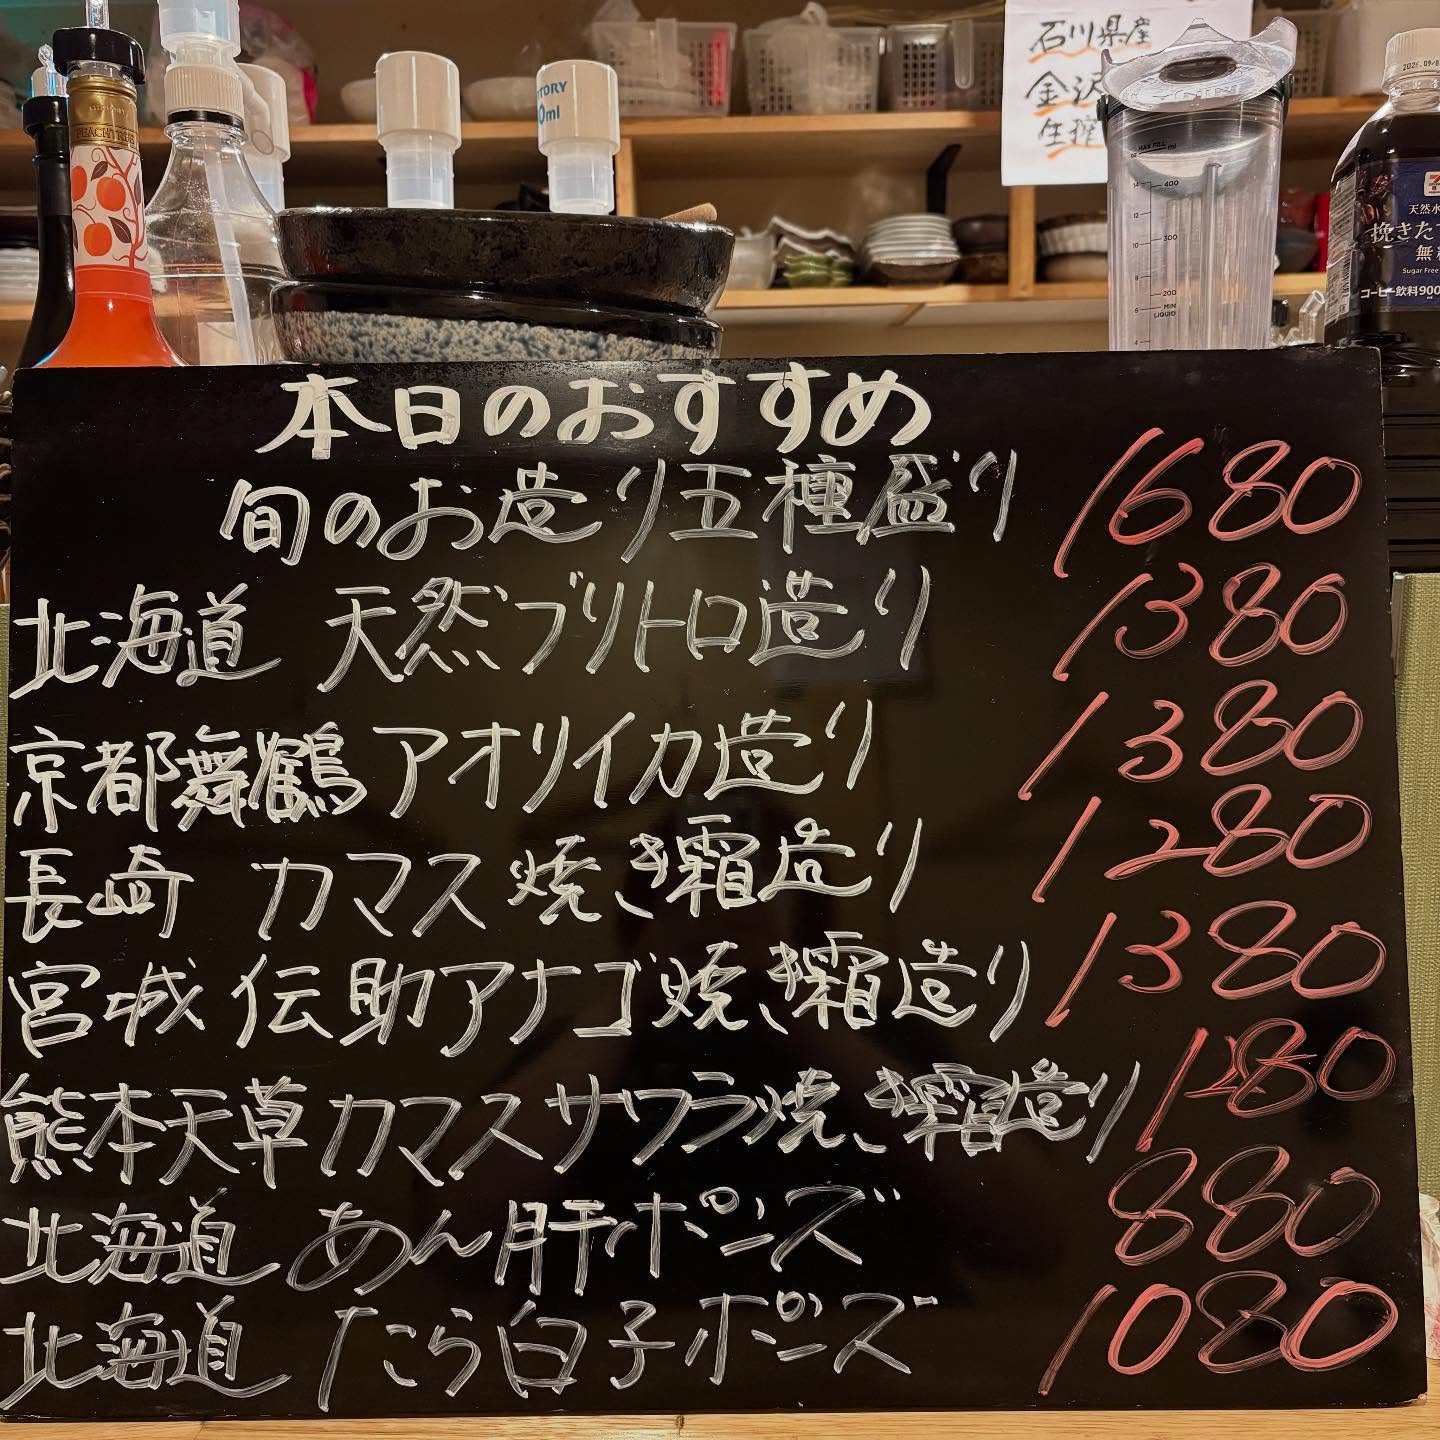 石川県産
金沢
生
PEACHTREE
TORY
0ml
MAX FILL
oz ml
400
300
200
MIN
LIQUID
14
12
10
8
6
4
天然水
挽きたて
無
Sugar Free
コーヒー飲料900
本日のおすすめ
旬のお造り五種盛り 1680
北海道 天然ブリトロ造り 1380
京都舞鶴アオリイカ造り 1380
長崎 カマス焼き霜造り 1280
宮城 伝助アナゴ焼き霜造り 1380
熊本天草カマスサワラ焼き霜造り 1280
北海道 あん肝ポンズ 880
北海道 たら白子ポンズ 1080